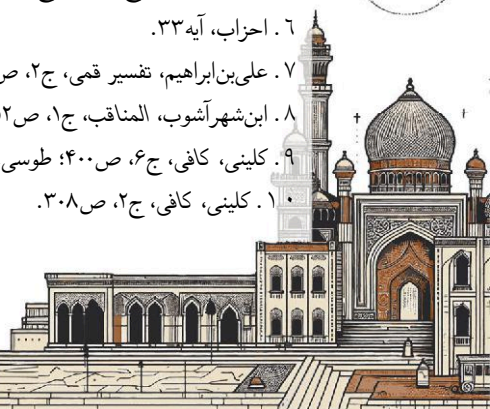 ۶. احزاب، آیه۳۳.
۷. علی‌بن‌ابراهیم، تفسیر قمی، ج۲، ص
۸. ابن‌شهرآشوب، المناقب، ج۱، ص
۹. کلینی، کافی، ج۶، ص۴۰۰؛ طوسی
۱۰. کلینی، کافی، ج۲، ص۳۰۸.